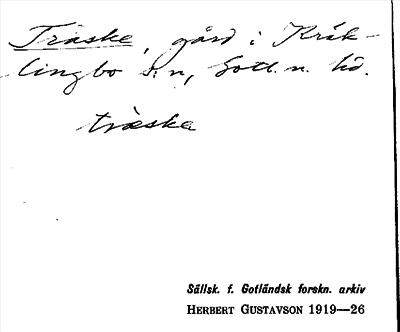 Träske, gård i Kräk-
lingbo s:n, Gotl. n. hd.
träska
Sällsk. f. Gotländsk forskn. arkiv
HERBERT GUSTAVSON 1919—26